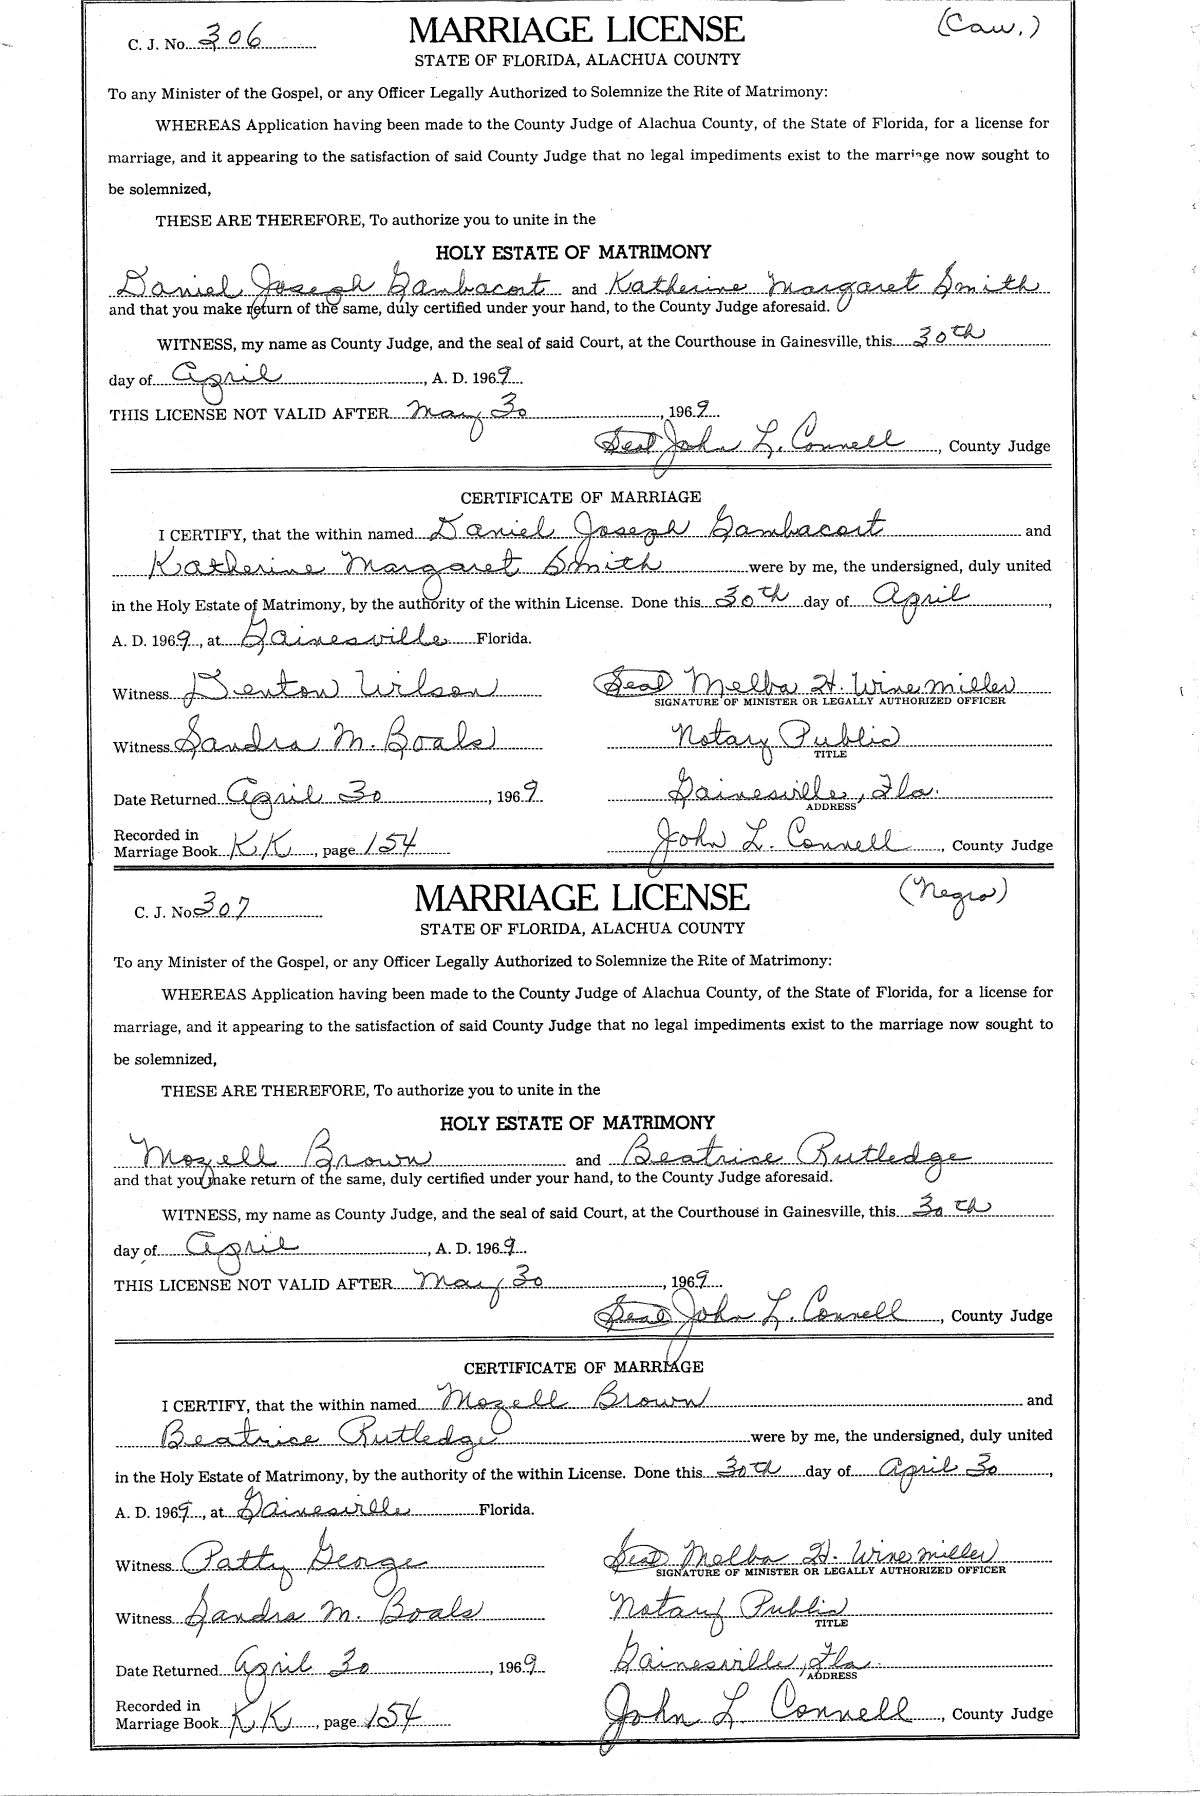 C. J. No. 306
MARRIAGE LICENSE
(Cau.)
STATE OF FLORIDA, ALACHUA COUNTY
To any Minister of the Gospel, or any Officer Legally Authorized to Solemnize the Rite of Matrimony:
WHEREAS Application having been made to the County Judge of Alachua County, of the State of Florida, for a license for
marriage, and it appearing to the satisfaction of said County Judge that no legal impediments exist to the marriage now sought to
be solemnized,
THESE ARE THEREFORE, To authorize you to unite in the
HOLY ESTATE OF MATRIMONY
Daniel Joseph Gambacort and Katherine Margaret Smith
and that you make return of the same, duly certified under your hand, to the County Judge aforesaid.
WITNESS, my name as County Judge, and the seal of said Court, at the Courthouse in Gainesville, this 30th
day of April, A. D. 1969
THIS LICENSE NOT VALID AFTER May 30, 1969
Seal John L. Connell, County Judge
CERTIFICATE OF MARRIAGE
I CERTIFY, that the within named Daniel Joseph Gambacort and
Katherine Margaret Smith were by me, the undersigned, duly united
in the Holy Estate of Matrimony, by the authority of the within License. Done this 30th day of April,
A. D. 1969, at Gainesville Florida.
Witness Denton Wilson Seal Melba H. Winemiller
SIGNATURE OF MINISTER OR LEGALLY AUTHORIZED OFFICER
Witness Sandra M. Boals Notary Public
TITLE
Date Returned April 30, 1969 Gainesville, Fla.
ADDRESS
Recorded in
Marriage Book KK, page 154 John L. Connell, County Judge
C. J. No. 307
MARRIAGE LICENSE
(Negro)
STATE OF FLORIDA, ALACHUA COUNTY
To any Minister of the Gospel, or any Officer Legally Authorized to Solemnize the Rite of Matrimony:
WHEREAS Application having been made to the County Judge of Alachua County, of the State of Florida, for a license for
marriage, and it appearing to the satisfaction of said County Judge that no legal impediments exist to the marriage now sought to
be solemnized,
THESE ARE THEREFORE, To authorize you to unite in the
HOLY ESTATE OF MATRIMONY
Mozell Brown and Beatrice Rutledge
and that you make return of the same, duly certified under your hand, to the County Judge aforesaid.
WITNESS, my name as County Judge, and the seal of said Court, at the Courthouse in Gainesville, this 30th
day of April, A. D. 1969
THIS LICENSE NOT VALID AFTER May 30, 1969
Seal John L. Connell, County Judge
CERTIFICATE OF MARRIAGE
I CERTIFY, that the within named Mozell Brown and
Beatrice Rutledge were by me, the undersigned, duly united
in the Holy Estate of Matrimony, by the authority of the within License. Done this 30th day of April 30,
A. D. 1969, at Gainesville Florida.
Witness Patty George Seal Melba H. Winemiller
SIGNATURE OF MINISTER OR LEGALLY AUTHORIZED OFFICER
Witness Sandra M. Boals Notary Public
TITLE
Date Returned April 30, 1969 Gainesville, Fla.
ADDRESS
Recorded in
Marriage Book KK, page 154 John L. Connell, County Judge